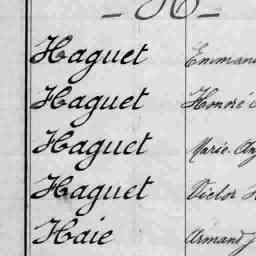 - H -
Haguet Emman
Haguet Honoré
Haguet Marie Ang
Haguet Victor H
Haie Armand J